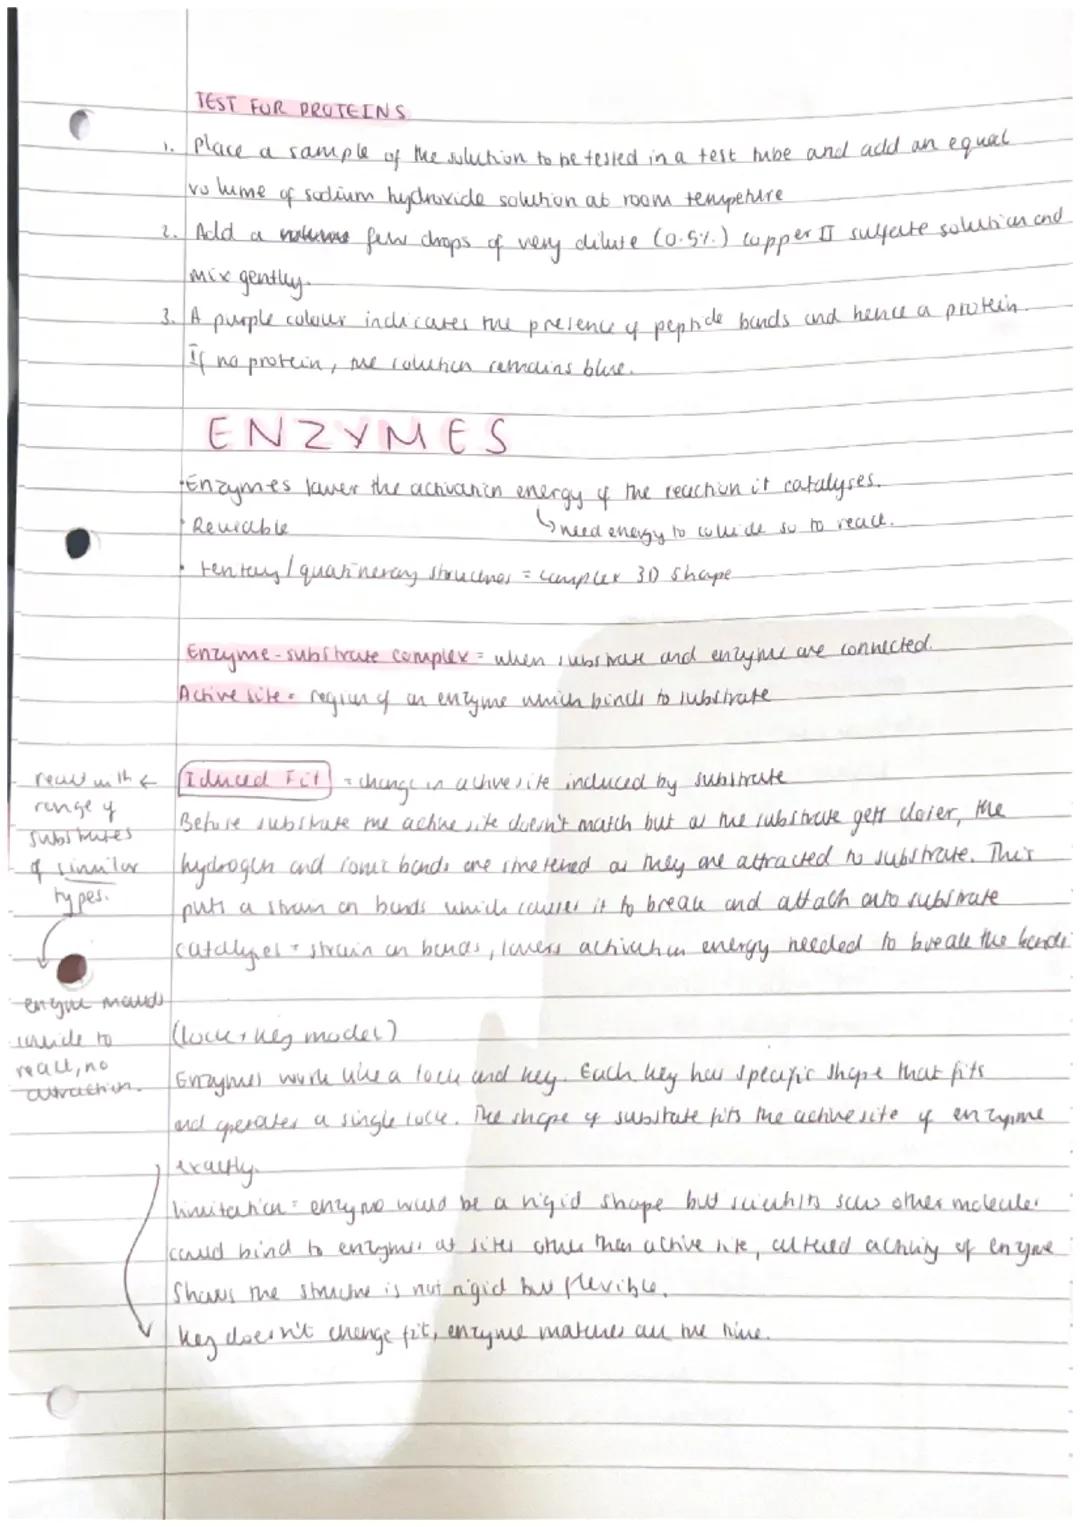 TEST FOR PROTEINS
1. Place a sample of the solution to be tested in a test tube and add an equal
volume of sodium hydroxide solution at room tempeture
2. Add a few drops of very dilute (0.5%) copper II sulfate solution and
mix gently.
3. A purple colour indicates the presence of peptide bonds and hence a protein.
If no protein, the solution remains blue.
ENZYMES
Enzymes lower the activation energy of the reaction it catalyses.
↳ need energy to collide so to react.
• Reusable
• tertary/quatinerary structures = complex 3D shape
Enzyme-substrate complex = when substrate and enzyme are connected.
Active site = region of an enzyme which binds to substrate
Iduced Fit = change in active site induced by substrate
react with ←
range of
substrates
of similar
types.
Before substrate the active site doesn't match but as the substrate gets closer, the
hydrogen and ionic bonds are stretened as they are attracted to substrate. This
puts a strain on bonds which causes it to break and attach onto substrate
catalyses = strain on bonds, lowers activation energy needed to break the bonds
enzyme
collide to
react, no
attraction.
(lock + key model)
Enzymes work like a lock and key. Each key has specific shape that fits
and operates a single lock. The shape of substrate fits the active site of enzyme
exactly.
limitation = enzyme would be a rigid shape but scientists saw other molecules
could bind to enzymes at sites other than active site, altered activity of enzyme
Shows the structure is not rigid but flexible.
Key doesn't change fit, enzyme matches all the time.